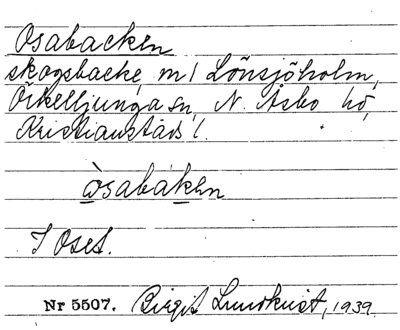 Osabacken
skogsbacke m/ Lönsjöholm,
Örkelljunga sn, N. Åsbo hd,
Kristianstads l.
òsabákən
I Oset.
Nr 5507. Birgit Lundkvist, 1939.